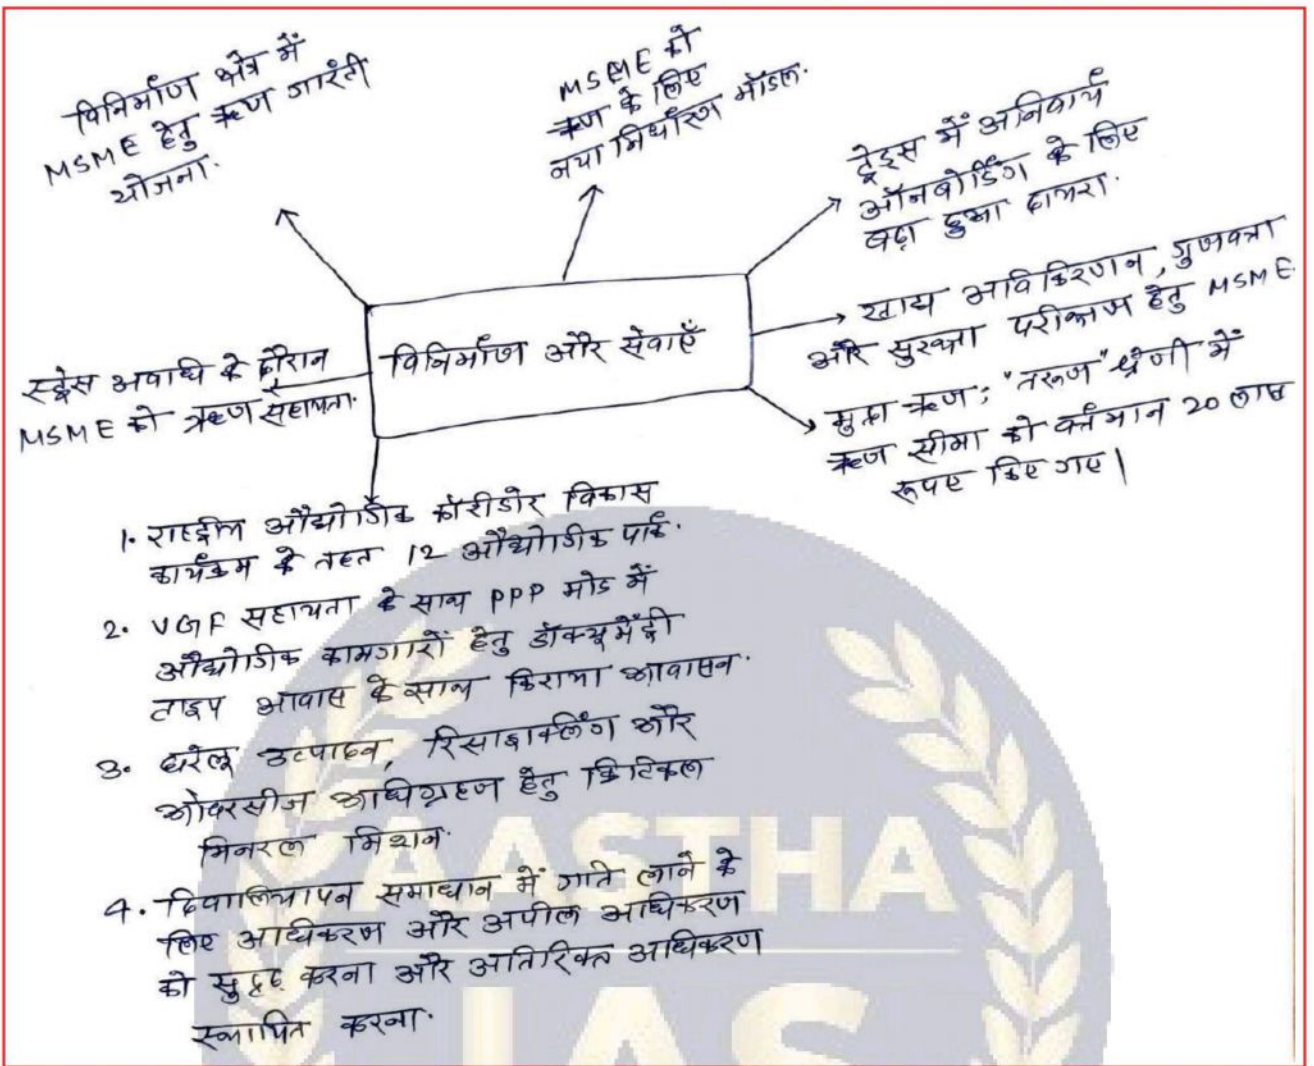 विनिर्माण क्षेत्र में
MSME हेतु ऋण गारंटी
योजना.
MSME को
ऋण के लिए
नया निर्धारण मॉडल.
ट्रेड्स में अनिवार्य
ऑनबोर्डिंग के लिए
बढ़ा हुआ दायरा.
विनिर्माण और सेवाएँ
खाद्य अविकिरणन, गुणवत्ता
और सुरक्षा परीक्षण हेतु MSME.
मुद्रा ऋण; "तरूण" श्रेणी में
ऋण सीमा को वर्तमान 20 लाख
रूपए किए गए|
स्ट्रेस अवधि के दौरान
MSME को ऋण सहायता.
1. राष्ट्रीय औद्योगिक कॉरीडोर विकास
कार्यक्रम के तहत 12 औद्योगिक पार्क.
2. VGF सहायता के साथ PPP मोड में
औद्योगिक कामगारों हेतु डॉक्यूमेंट्री
टाइप आवास के साथ किराया आवासन.
3. घरेलू उत्पादन, रिसाइक्लिंग और
ओवरसीज अधिग्रहण हेतु क्रिटिकल
मिनरल मिशन.
4. दिवालियापन समाधान में गति लाने के
लिए अधिकरण और अपील अधिकरण
को सुदृढ़ करना और अतिरिक्त अधिकरण
स्थापित करना.
AASTHA
IAS